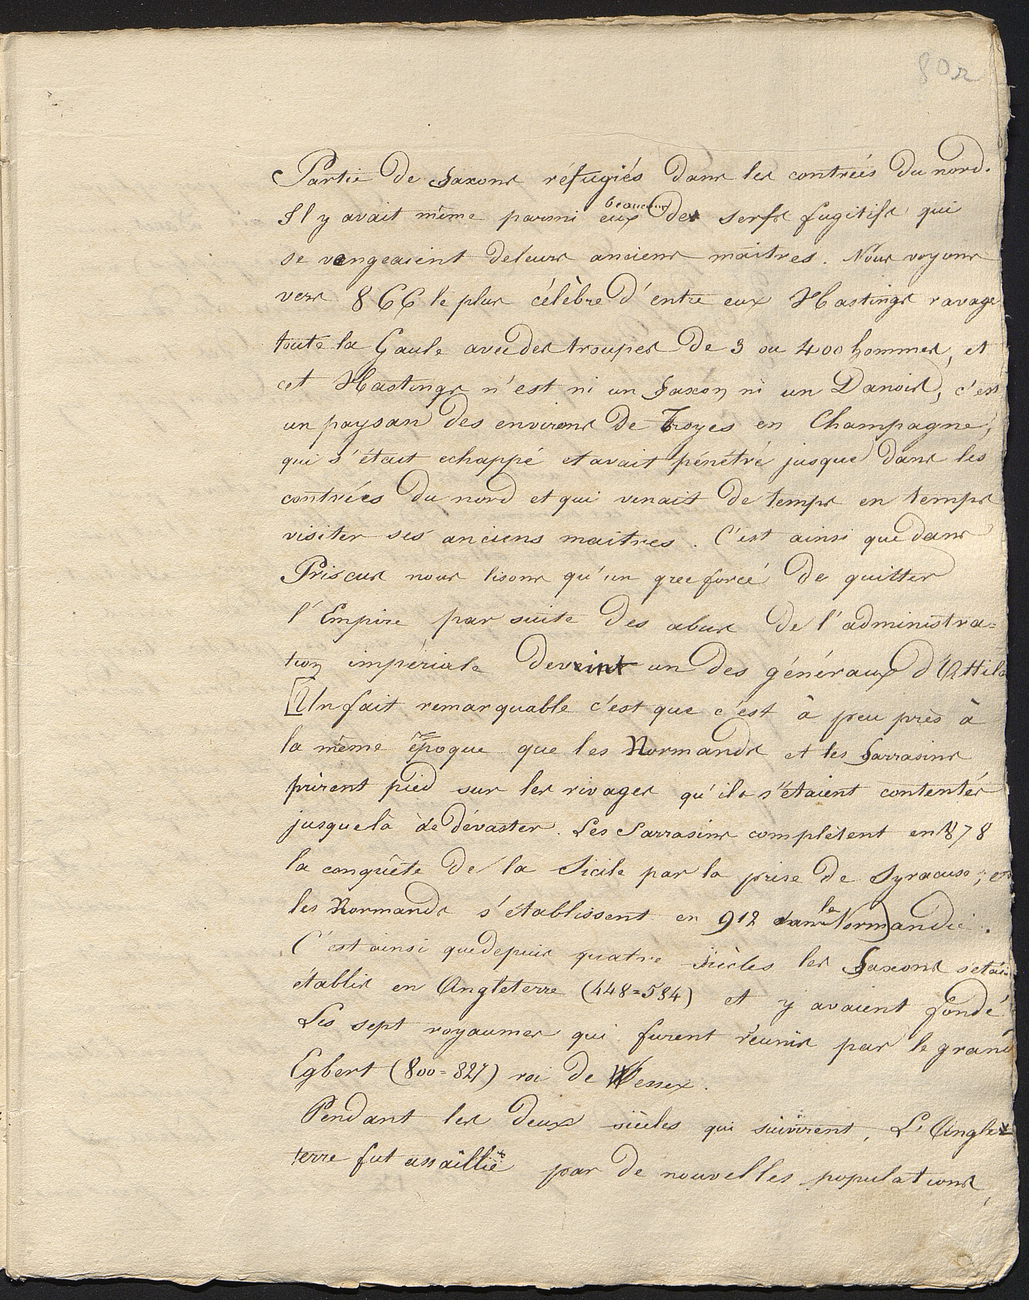 802
Partie de Saxons réfugiés dans les contrées du nord.
Il y avait même parmi eux beaucoup des serfs fugitifs qui
se vengeaient de leurs anciens maîtres. Nous voyons
vers 866 le plus célèbre d'entre eux Hastings ravager
toute la Gaule avec des troupes de 3 ou 400 hommes, et
cet Hastings n'est ni un Saxon ni un Danois, c'est
un paysan des environs de Troyes en Champagne,
qui s'était echappé et avait pénétré jusque dans les
contrées du nord et qui venait de temps en temps
visiter ses anciens maitres. C'est ainsi que dans
Priscus nous lisons qu'un grec forcé de quitter
l'Empire par suite des abus de l'administra=
tion impériale devint un des généraux d'Attila
[Un fait remarquable c'est que c'est à peu près à
la même époque que les Normands et les Sarrasins
prirent pied sur les rivages qu'ils s'étaient contentés
jusque là de dévaster. Les Sarrasins complètent en 878
la conquête de la Sicile par la prise de Syracuse, et
les Normands s'établissent en 912 dans la Normandie.
C'est ainsi que depuis quatre siècles les Saxons s'étaient
établis en Angleterre (448=584) et y avaient fondé
Les sept royaumes qui furent réunis par le grand
Egbert (800=827) roi de Wessex.
Pendant les deux siècles qui suivirent, L'Angle
terre fut assaillie par de nouvelles populations,